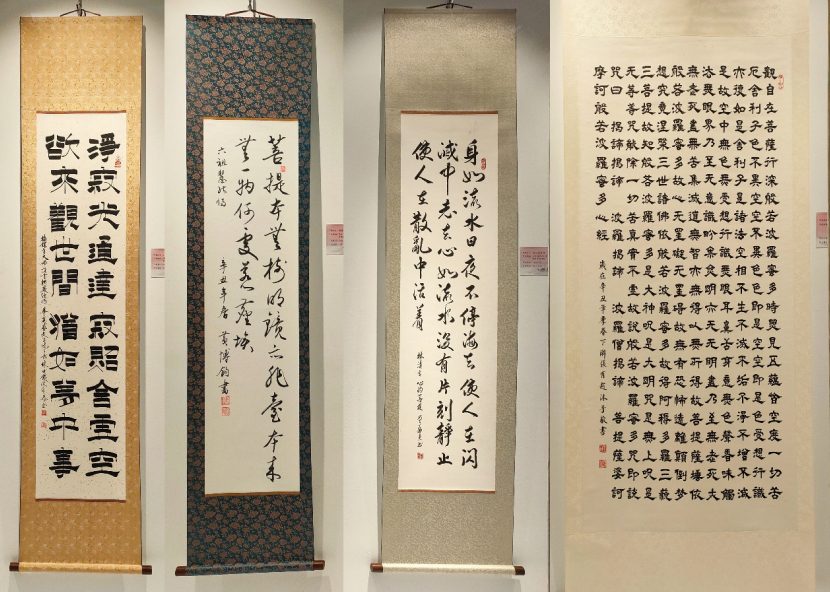 淨寂光通達寂照含虛空
卻來觀世間猶如夢中事
菩提本無樹明鏡亦非臺本來
無一物何處惹塵埃
六祖慧能偈
辛丑年春 黃博鈞書
身如流水日夜不停滴去使人在閃
滅中老去心如流水沒有片刻靜止
使人在散亂中活著
林清玄
觀自在菩薩行深般若波羅蜜多時照見五蘊皆空度一切苦
厄舍利子色不異空空不異色色即是空空即是色受想行識
亦復如是舍利子是諸法空相不生不滅不垢不淨不增不減
是故空中無色無受想行識無眼耳鼻舌身意無色聲香味觸
法無眼界乃至無意識界無無明亦無無明盡乃至無老死亦
無老死盡無苦集滅道無智亦無得以無所得故菩提薩埵依
般若波羅蜜多故心無罣礙無罣礙故無有恐怖遠離顛倒夢
想究竟涅槃三世諸佛依般若波羅蜜多故得阿耨多羅三藐
三菩提故知般若波羅蜜多是大神咒是大明咒是無上咒是
无等等咒能除一切苦真實不虛故說般若波羅蜜多咒即說
咒曰 揭諦揭諦 波羅揭諦 波羅僧揭諦 菩提薩婆訶
摩訶般若波羅蜜多心經
歲在辛丑 敬書